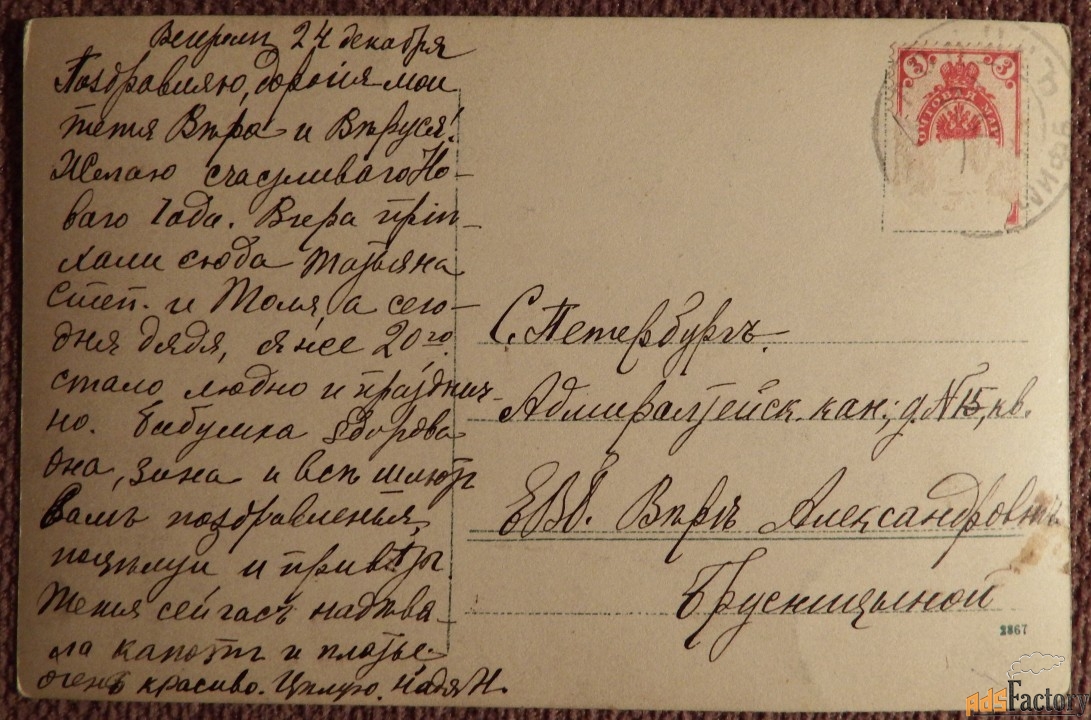 Вечеромъ 24 декабря
Поздравляю, дорогія мои
тетя Вѣра и Вѣруся!
Желаю счастливаго Но-
ваго Года. Вчера пріѣ-
хали сюда Татьяна
Степ. и Толя, а сего-
дня дядя,
стало людно и празднич-
но. Бабушка здорова
она, Зина и всѣ шлютъ
Вамъ поздравленья,
поцѣлуи и привѣты
Тетя сейчасъ надѣва-
ла капотъ и платье
очень красиво. Цѣлую. Надя Н.
3 3
ПОЧТОВАЯ МАР
С. Петербургъ.
Адмиралтейск. кан; д. №15, кв.
ЕВБ. Вѣрѣ Александровнѣ
Брусницыной
2867
AdsFactory